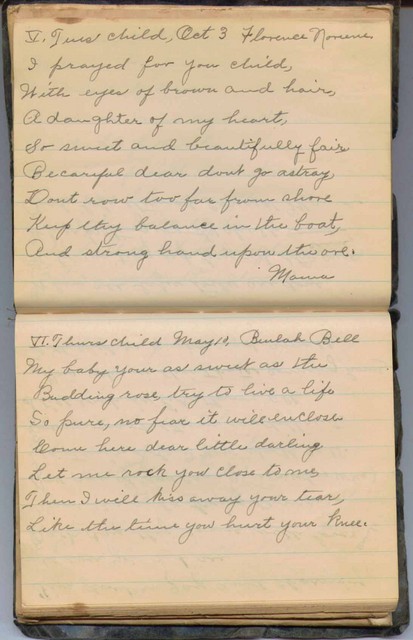 V. Tues child, Oct 3 Florence
I prayed for you child,
With eyes of brown and hair,
A daughter of my heart,
So sweet and beautifully fair
Be careful dear dont go astray
Dont row too far from shore
Keep thy balance in the boat,
And strong hand upon the ore.
Mama
VI. Thurs child May 10, Beulah Bell
My baby your as sweet as the
Budding rose, try to live a life
So pure, no fear it will enclose
Come here dear little darling
Let me rock you close to me,
Then I will kiss away your tear,
Like the time you hurt your knee.